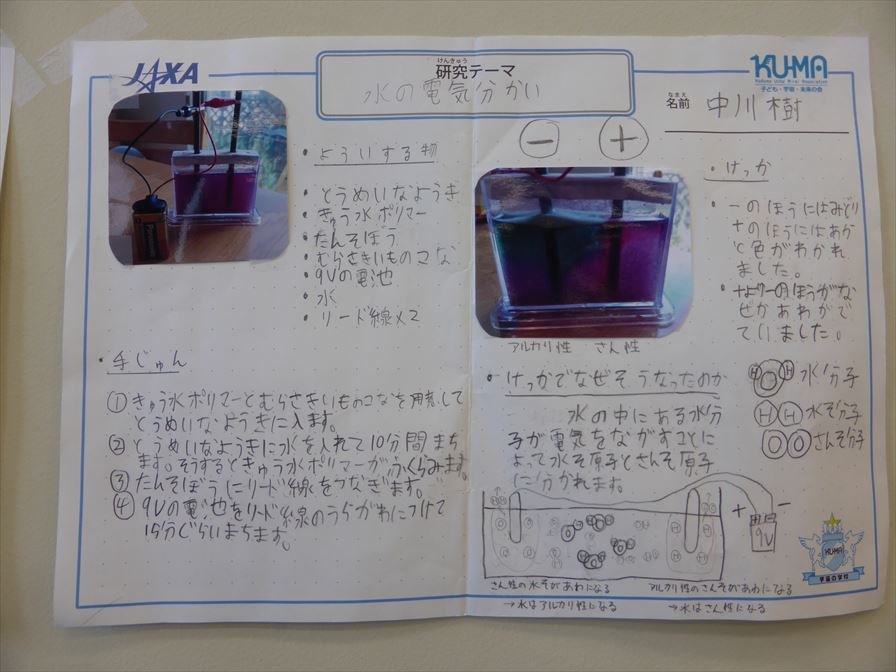 JAXA
けんきゅう
研究テーマ
水の電気分かい
KU-MA
子ども・宇宙・未来の会
なまえ
名前 中川樹
・よういする物
・とうめいなようき
・きゅう水ポリマー
・たんそぼう
・むらさきいものこな
・9Vの電池
・水
・リード線×2
・手じゅん
①きゅう水ポリマーとむらさきいものこなを用意して
とうめいなようきに入ます。
②とうめいなようきに水を入れて10分間まち
ます。そうするときゅう水ポリマーがふくらみます。
③たんそぼうにリード線をつなぎます。
④9Vの電池をリード線のうらがわにつけて
15分ぐらいまちます。
Panasonic
− +
アルカリ性 さん性
・けっか
・−のほうにはみどり
+のほうにはあか
と色がわかれ
ました。
・+より−のほうがな
ぜかあわがで
ていました。
・けっかでなぜそうなったのか
水の中にある水分
子が電気をながすことに
よって水そ原子とさんそ原子
に分かれます。
HOH 水分子
HH 水そ分子
OO さんそ分子
+ −
9V
さん性の水そがあわになる
→水はアルカリ性になる
アルカリ性のさんそがあわになる
→水はさん性になる
KU-MA
宇宙の学校